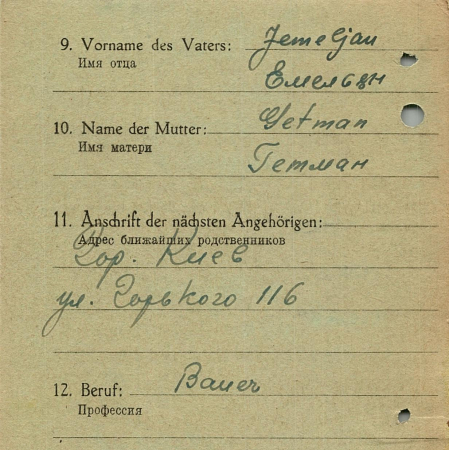 9. Vorname des Vaters: Jemeljan
Имя отца
Емельян
10. Name der Mutter: Getman
Имя матери
Гетман
11. Anschrift der nächsten Angehörigen:
Адрес ближайших родственников
Гор. Киев
ул. Горького 116
12. Beruf: Bauer
Профессия